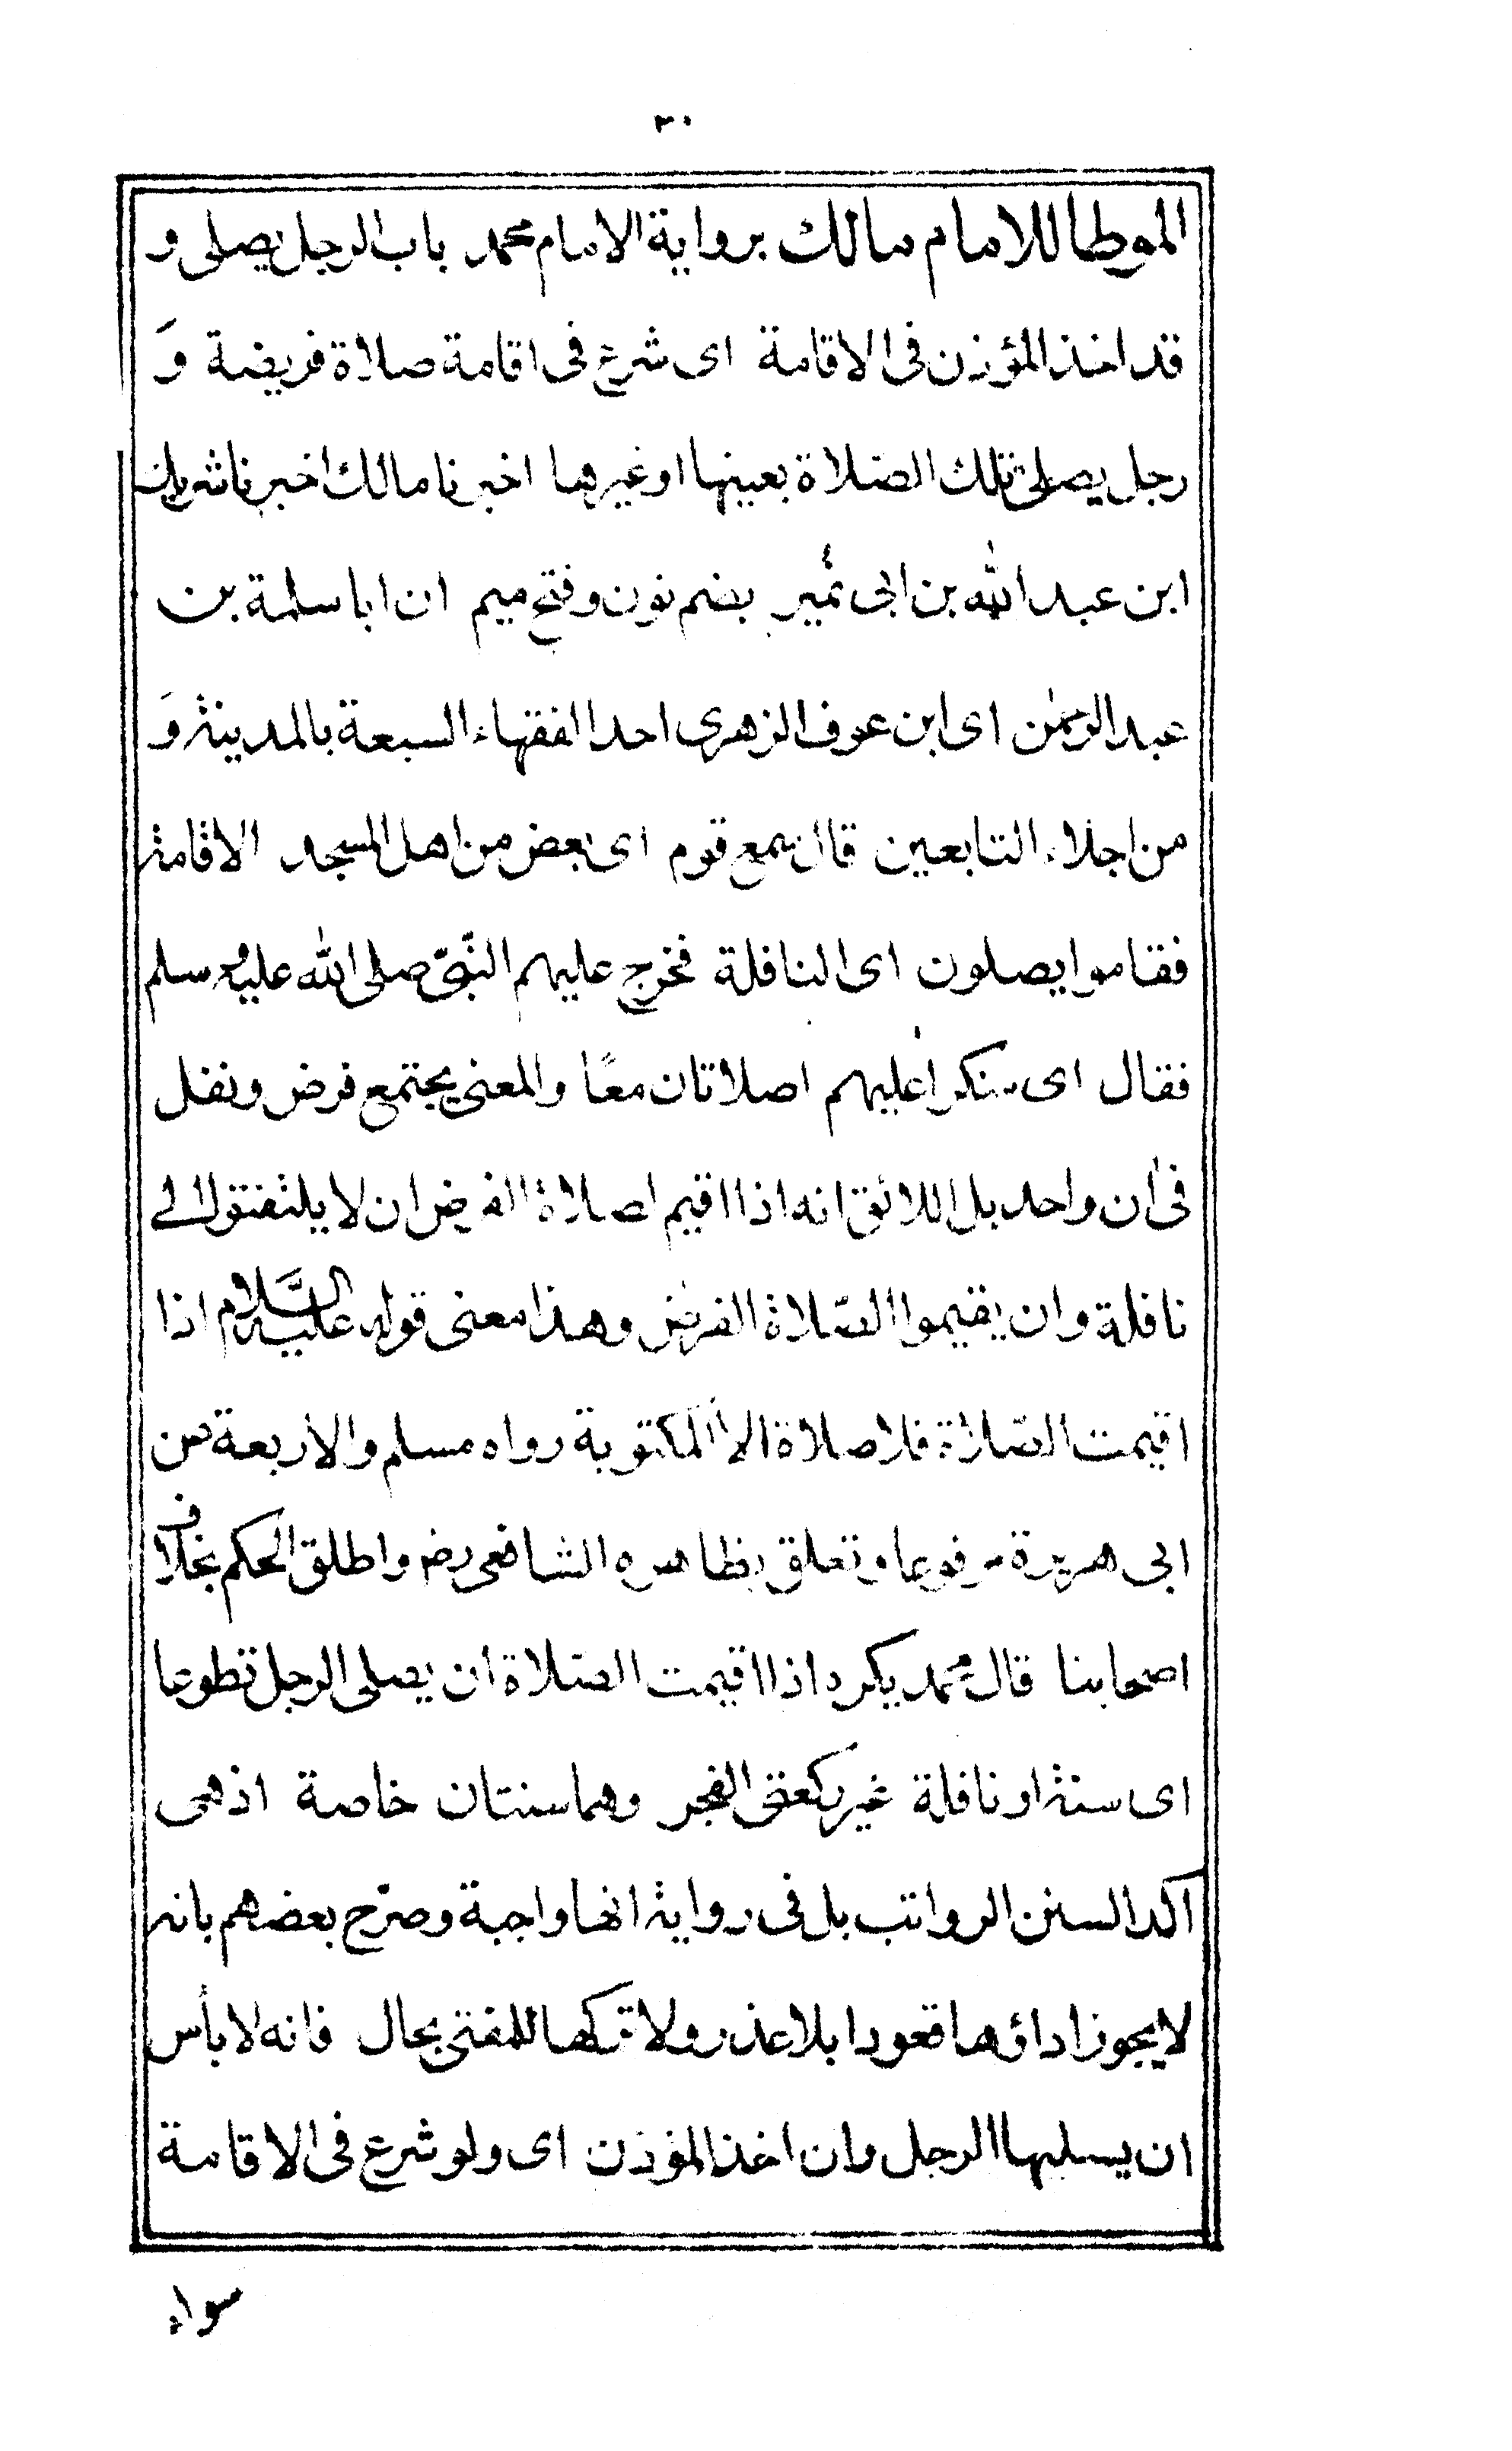 ٣٠
الموطا للامام مالك برواية الامام محمد باب الرجل يصلى و
قد اخذ المؤذن فى الاقامة اى شرع فى اقامة صلاة فريضة وَ
رجل يصلى تلك الصلاة بعينها او غيرها اخبرنا مالك اخبرنا شريك
ابن عبد الله بن ابى نُمير بضم نون وفتح ميم ان ابا سلمة بن
عبد الرحمٰن اى ابن عوف الزهرى احد الفقهاء السبعة بالمدينة وَ
من اجلاء التابعين قال سمع قوم اى بعض من اهل المسجد الاقامة
فقاموا يصلون اى النافلة فخرج عليهم النّبىّ صلى الله عليه وسلم
فقال اى منكرا عليهم اصلاتان معًا والمعنى يجتمع فرض ونفل
فى ان واحد بل اللائق انه اذا اقيم لصلاة الفرض ان لا يلتفتوا الى
نافلة وان يقيموا الصّلاة الفرض وهذا معنى قوله عليه السَّلام اذا
اقيمت الصّلاة فلا صلاة الا المكتوبة رواه مسلم والاربعة عن
ابى هريرة مرفوعا وتعلق بظاهره الشافعى رض واطلق الحكم بخلاف
اصحابنا قال محمد يكره اذا اقيمت الصّلاة ان يصلى الرجل تطوعا
اى سنة او نافلة غير ركعتى الفجر وهما سنتان خاصة اذ هى
اكد السنن الرواتب بل فى رواية انها واجبة وصرّح بعضهم بانه
لا يجوز اداؤها قعودا بلا عذر ولا تركها للمفتى بحال فانه لا بأس
ان يصليها الرجل وان اخذ المؤذن اى ولو شرع فى الاقامة
سواء